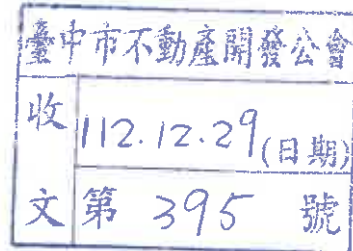 臺中市不動產開發公會
收 112.12.29(日期)
文 第 395 號